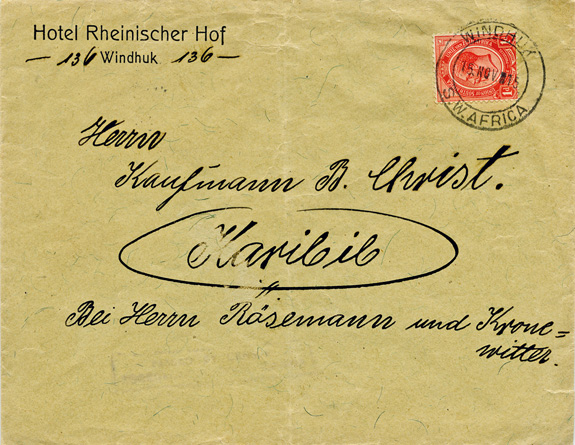 Hotel Rheinischer Hof
— 136 Windhuk 136 —
WINDHUK
NOV
S.W. AFRICA
Herrn
Kaufmann B. Christ.
Karibib
Bei Herrn Rösemann und Krone=
witter.